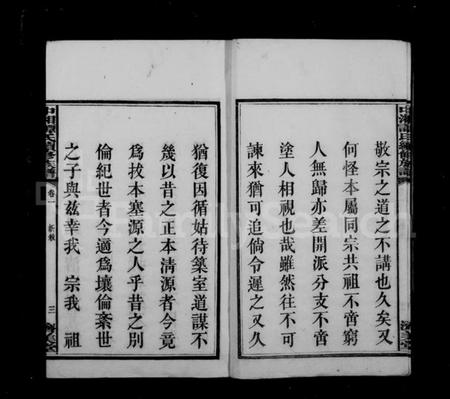 敬宗之道之不講也久矣又
何怪本屬同宗共祖不啻窮
人無歸亦差開派分支不啻
塗人相視也哉雖然往不可
諫來猶可追倘令遲之又久
猶復因循姑待築室道謀不
幾以昔之正本清源者今竟
為拔本塞源之人乎昔之別
倫紀世者今適為壤倫紊世
之子與玆幸我　宗我　祖
中湘譚氏續修族譜
卷一
三